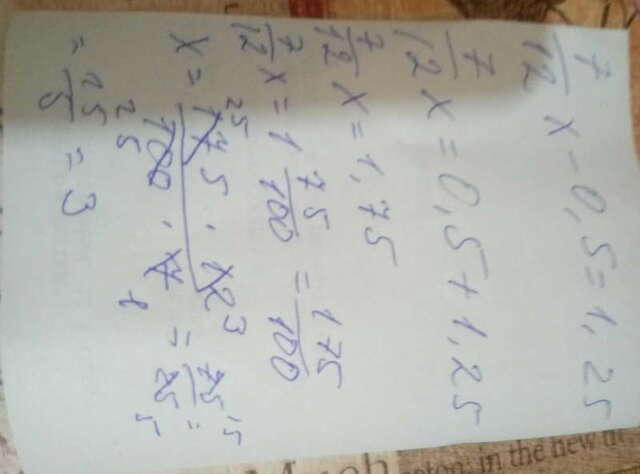 7/12 x - 0,5 = 1,25
7/12 x = 0,5 + 1,25
7/12 x = 1,75
7/12 x = 1 75/100 = 175/100
x = 175 25 · 12 3 / 100 25 · 7 1 = 75 15 / 25 5 =
= 15/5 = 3
in the new